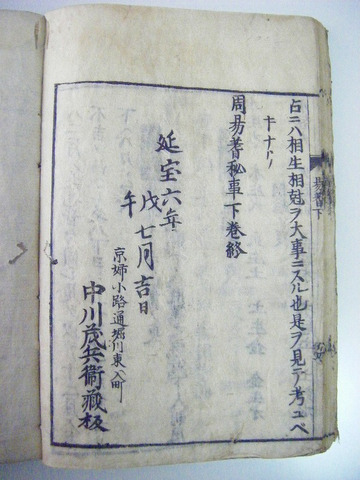 占ニハ相生相尅ヲ大事ニスル也是ヲ見テ考ユベ
キナリ
周易蓍秘事下巻終
延宝六年
戊午
七月吉日
京婦小路通堀川東入町
中川茂兵衛蔵板
易蓍下